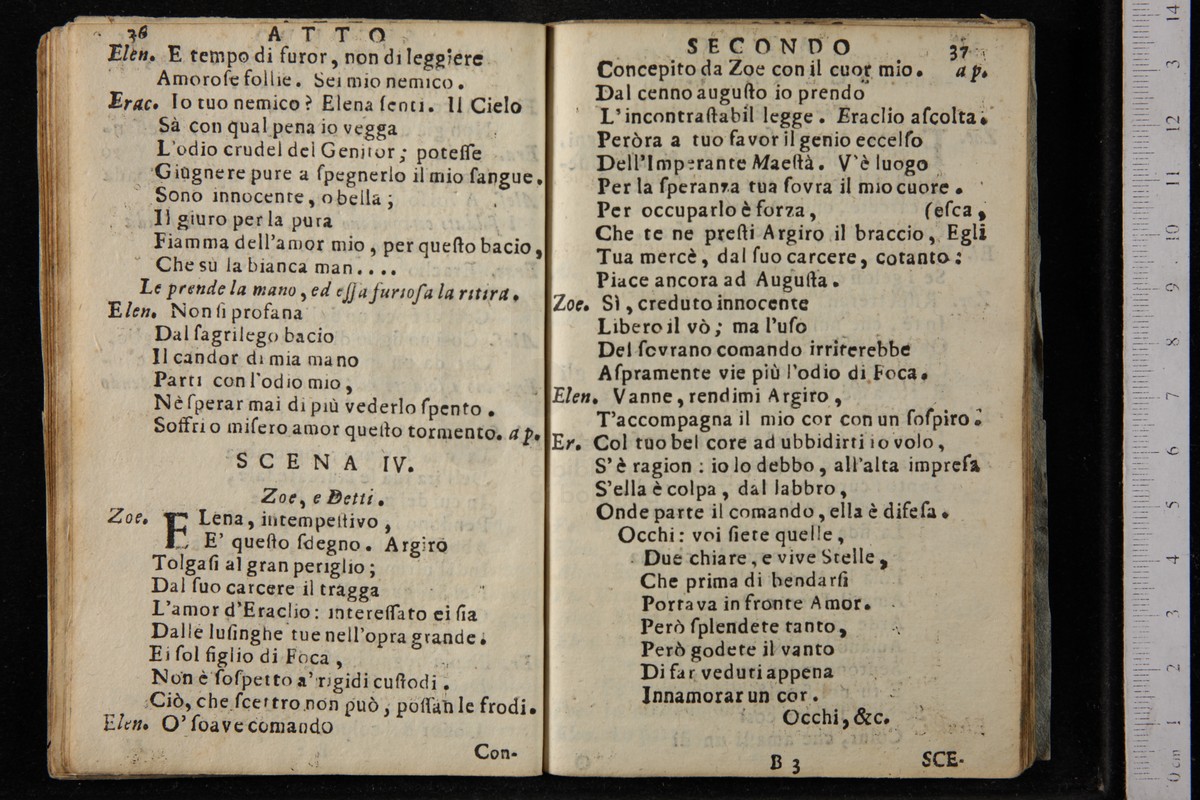 36 ATTO
Elen. E tempo di furor, non di leggiere
Amoroſe follie. Sei mio nemico.
Erac. Io tuo nemico? Elena ſenti. Il Cielo
Sà con qual pena io vegga
L'odio crudel del Genitor; poteſſe
Giugnere pure a ſpegnerlo il mio ſangue.
Sono innocente, o bella;
Il giuro per la pura
Fiamma dell'amor mio, per queſto bacio,
Che sù la bianca man....
Le prende la mano, ed eſſa furioſa la ritira.
Elen. Non ſi profana
Dal ſagrilego bacio
Il candor di mia mano
Parti con l'odio mio,
Nè ſperar mai di più vederlo ſpento.
Soffri o miſero amor queſto tormento. ap.
SCENA IV.
Zoe, e Detti.
Zoe. ELena, intempeſtivo,
E' queſto ſdegno. Argiro
Tolgaſi al gran periglio;
Dal ſuo carcere il tragga
L'amor d'Eraclio: intereſſato ei ſia
Dalle luſinghe tue nell'opra grande.
Ei ſol figlio di Foca,
Non è ſoſpetto a' rigidi cuſtodi.
Ciò, che ſcettro non può, poſſan le frodi.
Elen. O' ſoave comando
Con-
SECONDO 37
Concepito da Zoe con il cuor mio. ap.
Dal cenno auguſto io prendo
L'incontraſtabil legge. Eraclio aſcolta.
Peròra a tuo favor il genio eccelſo
Dell'Imperante Maeſtà. V'è luogo
Per la ſperanza tua ſovra il mio cuore.
Per occuparlo è forza, (eſca,
Che te ne preſti Argiro il braccio, Egli
Tua mercè, dal ſuo carcere, cotanto:
Piace ancora ad Auguſta.
Zoe. Sì, creduto innocente
Libero il vò; ma l'uſo
Del ſovrano comando irriterebbe
Aſpramente vie più l'odio di Foca.
Elen. Vanne, rendimi Argiro,
T'accompagna il mio cor con un ſoſpiro.
Er. Col tuo bel core ad ubbidirti io volo,
S'è ragion: io lo debbo, all'alta impreſa
S'ella è colpa, dal labbro,
Onde parte il comando, ella è difeſa.
Occhi: voi ſiete quelle,
Due chiare, e vive Stelle,
Che prima di bendarſi
Portava in fronte Amor.
Però ſplendete tanto,
Però godete il vanto
Di far veduti appena
Innamorar un cor.
Occhi, &c.
B 3 SCE-